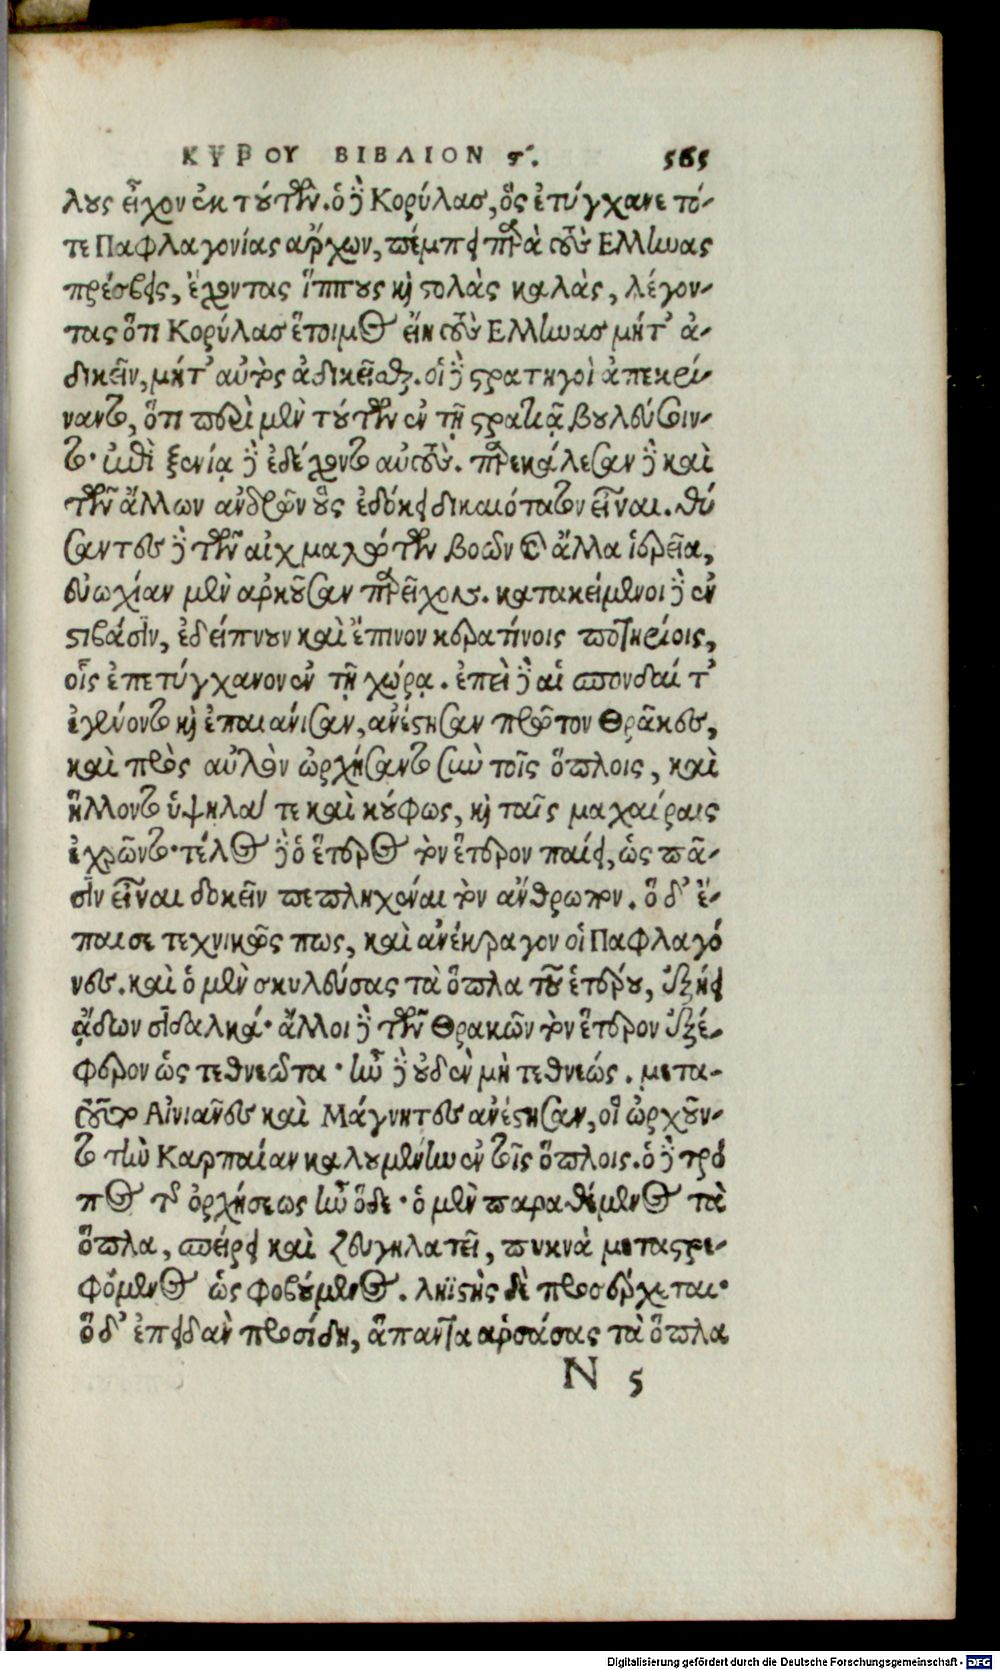 ΚΥΡΟΥ ΒΙΒΛΙΟΝ ϛ´. 565
λους εἶχον ἐκ τούτων. ὁ δὲ Κορύλας, ὃς ἐτύγχανε τό-
τε Παφλαγονίας ἄρχων, πέμπει παρὰ τοὺς Ἕλληνας
πρέσβεις, ἔχοντας ἵππους καὶ στολὰς καλὰς, λέγον-
τας ὅτι Κορύλας ἕτοιμος εἴη τοὺς Ἕλληνας μήτ' ἀ-
δικεῖν, μήτ' αὐτὸς ἀδικεῖσθαι. οἱ δὲ στρατηγοὶ ἀπεκρί-
ναντο, ὅτι περὶ μὲν τούτων ἐν τῇ στρατιᾷ βουλεύσοιν-
το· ἐπὶ ξενίᾳ δὲ ἐδέχοντο αὐτούς. παρεκάλεσαν δὲ καὶ
τῶν ἄλλων ἀνδρῶν οὓς ἐδόκει δικαιότατον εἶναι. θύ
σαντες δὲ τῶν αἰχμαλώτων βοῶν καὶ ἄλλα ἱερεῖα,
εὐωχίαν μὲν ἀρκοῦσαν παρεῖχον. κατακείμενοι δὲ ἐν
στιβάσιν, ἐδείπνουν καὶ ἔπινον κερατίνοις ποτηρίοις,
οἷς ἐπετύγχανον ἐν τῇ χώρᾳ. ἐπεὶ δὲ αἱ σπονδαί τ'
ἐγένοντο καὶ ἐπαιάνισαν, ἀνέστησαν πρῶτον Θρᾶκες,
καὶ πρὸς αὐλὸν ὠρχήσαντο σὺν τοῖς ὅπλοις, καὶ
ἥλλοντο ὑψηλά τε καὶ κούφως, καὶ ταῖς μαχαίραις
ἐχρῶντο· τέλος δὲ ὁ ἕτερος τὸν ἕτερον παίει, ὡς πᾶ-
σιν εἶναι δοκεῖν πεπληχέναι τὸν ἄνθρωπον. ὅ δ' ἔ-
παισε τεχνικῶς πως, καὶ ἀνέκραγον οἱ Παφλαγό
νες. καὶ ὁ μὲν σκυλεύσας τὰ ὅπλα τοῦ ἑτέρου, ἐξῄει
ᾄδων σιταλκά· ἄλλοι δὲ τῶν Θρακῶν τὸν ἕτερον ἐξέ-
φερον ὡς τεθνεῶτα· ἦν δὲ οὐδὲν μὴ τεθνεώς. μετα-
τοῦτο Αἰνιᾶνες καὶ Μάγνητες ἀνέστησαν, οἳ ὠρχοῦν-
το τὴν Καρπαίαν καλουμένην ἐν τοῖς ὅπλοις. ὁ δὲ τρό
πος τῆς ὀρχήσεως ἦν ὅδε· ὁ μὲν παραθέμενος τὰ
ὅπλα, σπείρει καὶ ζευγηλατεῖ, πυκνὰ μεταστρε-
φόμενος ὡς φοβούμενος. ληϊστὴς δὲ προσέρχεται·
ὅ δ' ἐπειδὰν προσίδῃ, ἅπαντα ἁρπάσας τὰ ὅπλα
N 5
Digitalisierung gefördert durch die Deutsche Forschungsgemeinschaft - DFG